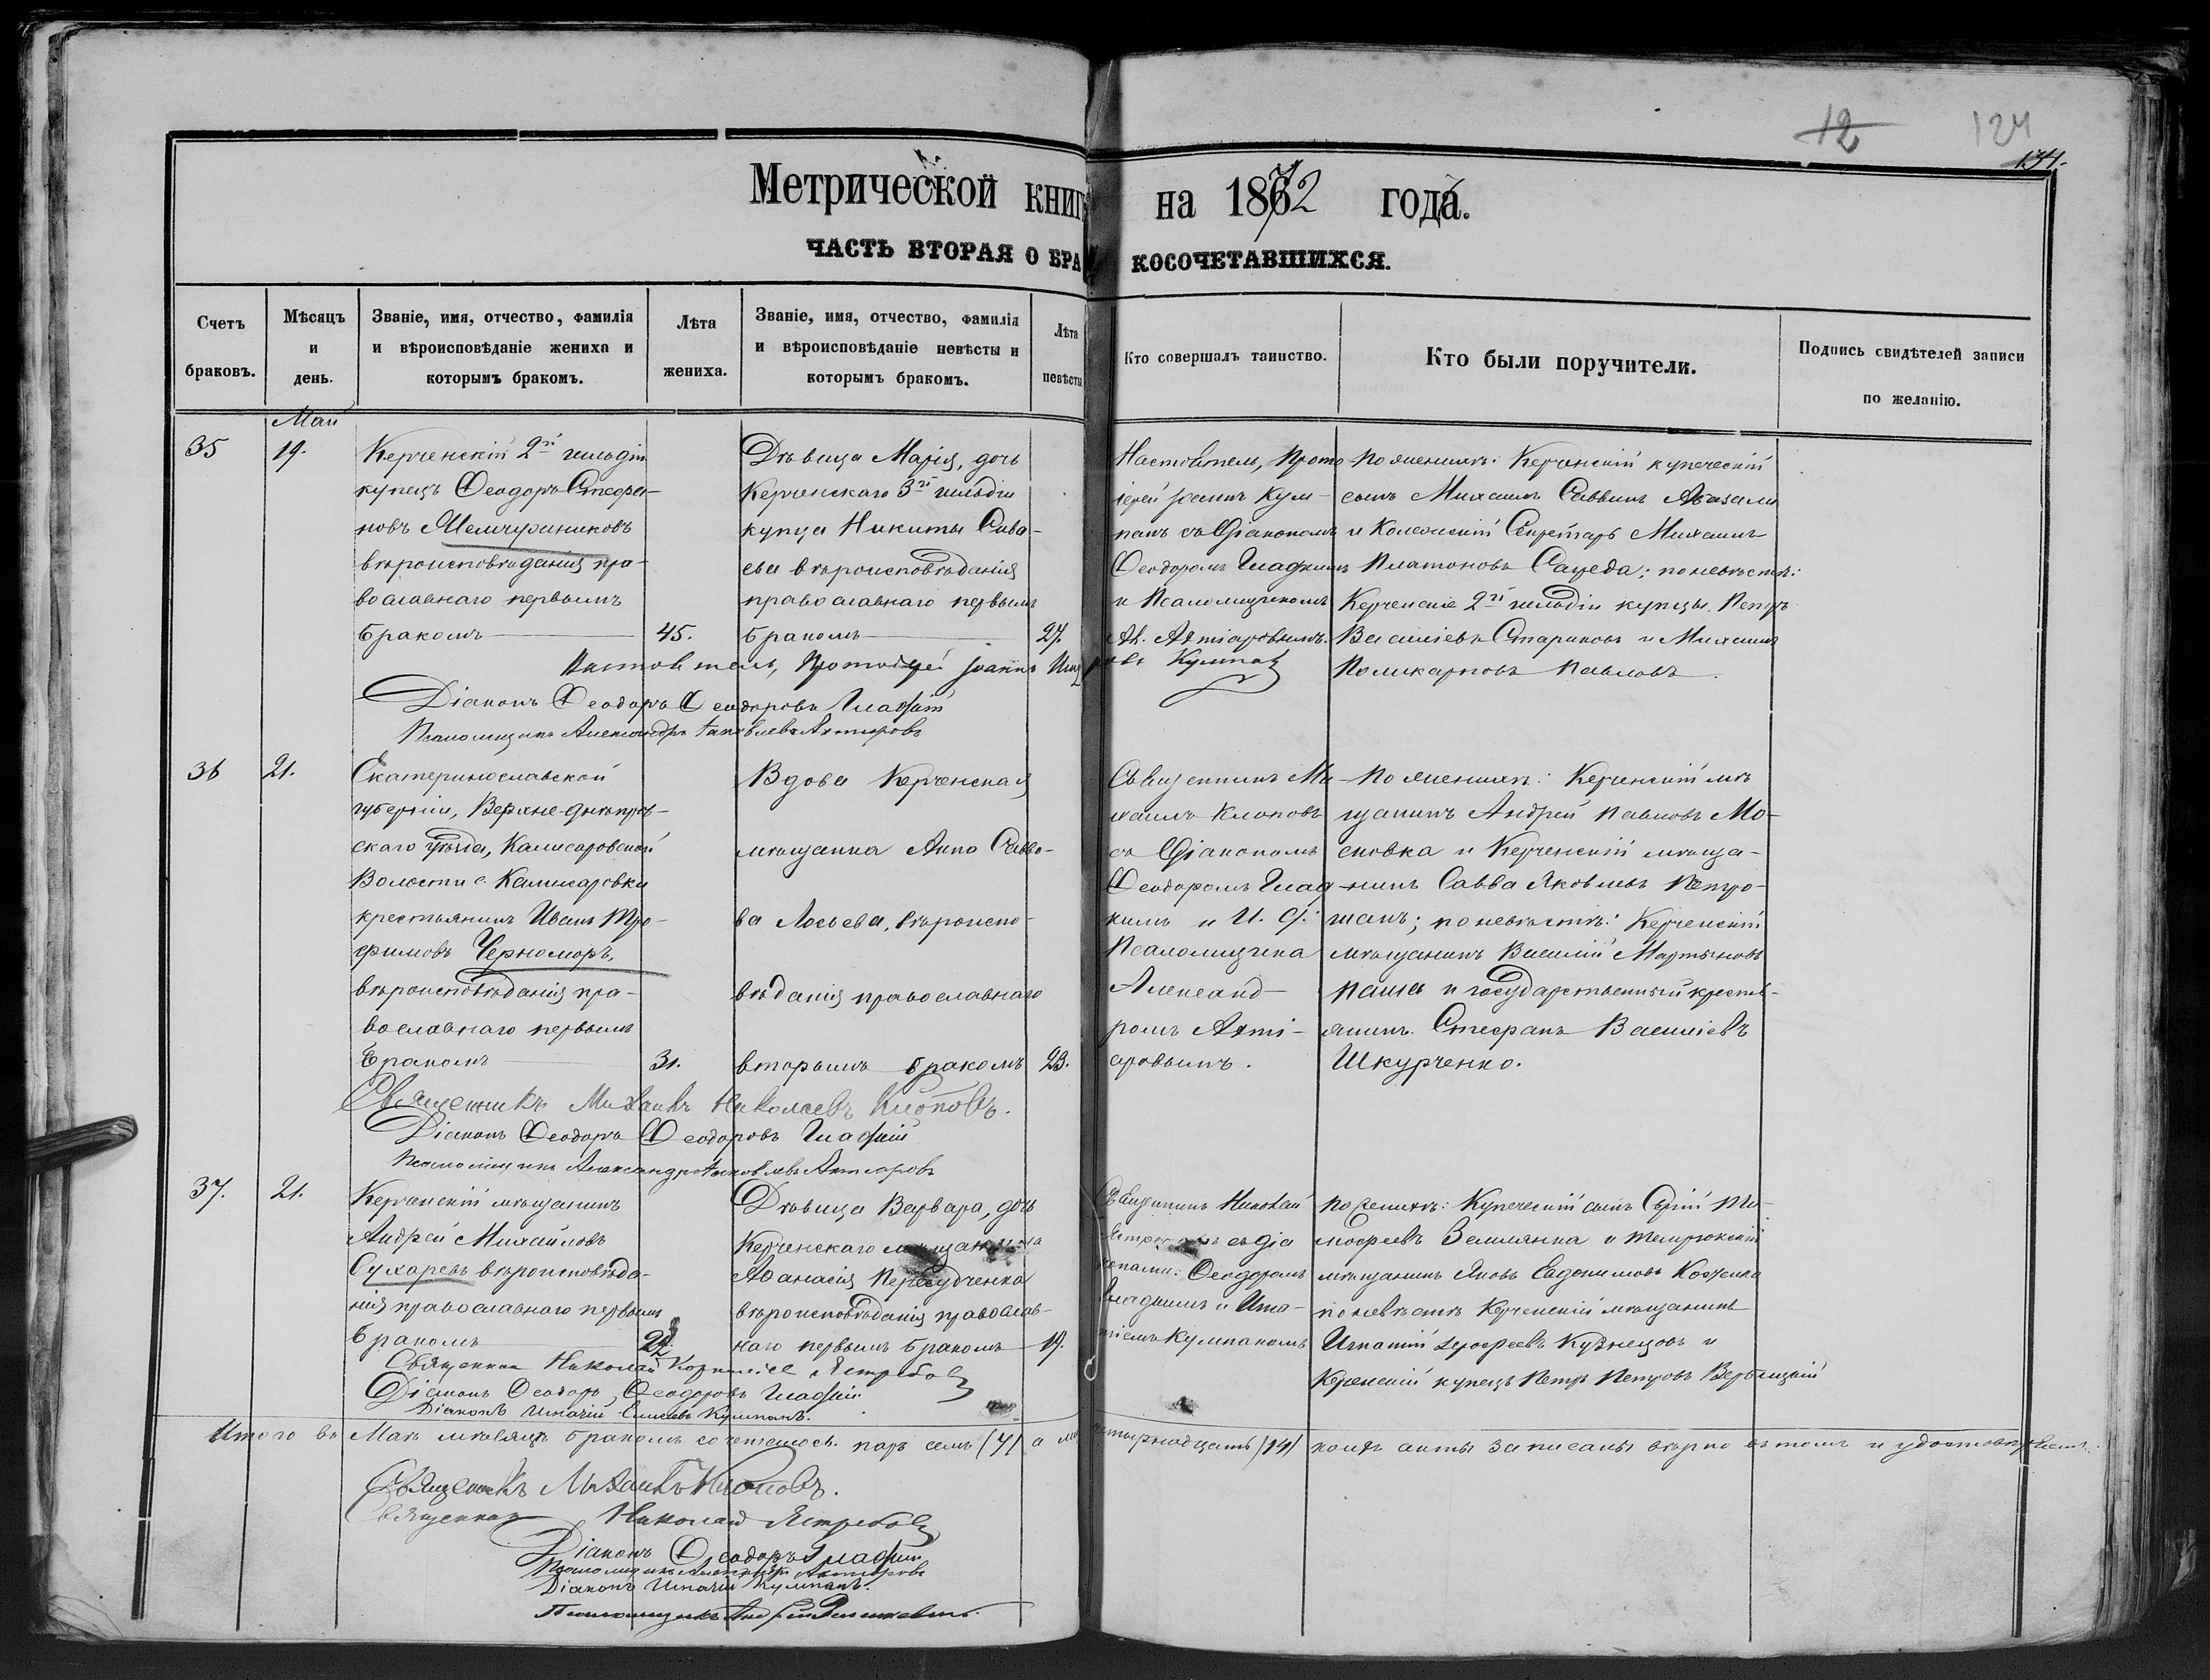 12
124
134.
Метрической книг на 1872 года.
ЧАСТЬ ВТОРАЯ О БРАКОСОЧЕТАВШИХСЯ.
Счетъ браковъ.
Мѣсяцъ и день.
Званіе, имя, отчество, фамилія и вѣроисповѣданіе жениха и которымъ бракомъ.
Лѣта жениха.
Званіе, имя, отчество, фамилія и вѣроисповѣданіе невѣсты и которымъ бракомъ.
Лѣта невѣсты
Кто совершалъ таинство.
Кто были поручители.
Подпись свидѣтелей записи по желанію.
Май
35
19.
Керченскій 2й гильдіи
купецъ Ѳеодоръ Стефа-
новъ
вѣроисповѣданія пра-
вославнаго первымъ
бракомъ
45.
Дѣвица Марія, дочь
Керченскаго 3й гильдіи
купца Никиты Сава-
ева вѣроисповѣданія
православнаго первымъ
бракомъ
27.
Настоятель, Прото-
іерей Іоаннъ Кум-
панъ съ Діакономъ
Ѳеодоромъ Гладкимъ
и Псаломщикомъ
Ал. Ахтіаровымъ.
По женихѣ: Керченскій купеческій
сынъ Михаилъ Саввинъ
и Колежскій Секретарь Михаилъ
Платоновъ Сацеда; по невѣстѣ:
Керченскіе 2й гильдіи купцы, Петръ
Василіевъ Стариковъ и Михаилъ
Поликарповъ Павловъ.
Настоятель, Протоіерей Іоаннъ Кумпанъ
Діаконъ Ѳеодоръ Ѳеодоровъ Гладкій
Псаломщикъ Александръ Іаковлевъ Ахтіаровъ
36
21.
Екатеринославской
губерніи, Верхне-днѣпров-
скаго уѣзда, Камисаровской
Волости с. Камисаровки
крестьянинъ Иванъ Тро-
фимовъ Черноморъ,
вѣроисповѣданія пра-
вославнаго первымъ
бракомъ
31.
Вдова Керченская
мѣщанка Анна Савво-
ва Лосьева, вѣроиспо-
вѣданія православнаго
вторымъ бракомъ
23.
Священникъ Ми-
хаилъ Клоповъ
съ Діакономъ
Ѳеодоромъ Глад-
кимъ и И. д.
Псаломщика
Александ-
ромъ Ахті-
аровымъ.
По женихѣ: Керченскій мѣ
щанинъ Андрей Павловъ Мо-
сковка и Керченскій мѣща-
нинъ Савва Яковлевъ Петро-
шанъ; по невѣстѣ: Керченскій
мѣщанинъ Василій Мартыновъ
Паша и государственный кресть-
янинъ Стефанъ Василіевъ
Шкурченко.
Священникъ Михаилъ Николаевъ Клоповъ.
Діаконъ Ѳеодоръ Ѳеодоровъ Гладкій
Псаломщикъ Александръ Іаковлевъ Ахтіаровъ
37.
21.
Керченскій мѣщанинъ
Андрей Михайловъ
Сухаревъ вѣроисповѣда-
нія православнаго первымъ
бракомъ
Дѣвица Варвара, дочь
Керченскаго мѣщанина
Аѳанасія
вѣроисповѣданія православ-
наго первымъ бракомъ
19.
Священникъ Николай
Ястребовъ съ діа
конами: Ѳеодоромъ
Гладкимъ и Игна-
тіемъ Кумпаномъ
По женихѣ: Купеческій сынъ Сергій Ти-
мофеевъ Землянка и Темрюкскій
мѣщанинъ Яковъ Евдокимовъ
по невѣстѣ Керченскій мѣщанинъ
Игнатій Іерофеевъ Кузнецовъ и
Керченскій купецъ Петръ Петровъ Вербицкій
Священникъ Николай Корниліевъ Ястребовъ
Діаконъ Ѳеодоръ Ѳеодоровъ Гладкій
Діаконъ Игнатій Кумпанъ.
Итого въ Маѣ мѣсяцѣ бракомъ сочеталось паръ семь (7) а четырнадцать (14) коихъ акты записаны вѣрно въ томъ и удостовѣряемъ.
Священникъ Михаилъ Клоповъ.
Священникъ Николай Ястребовъ
Діаконъ Ѳеодоръ Гладкій
Псаломщикъ Александръ Ахтіаровъ
Діаконъ Игнатій Кумпанъ.
Псаломщикъ Андрей